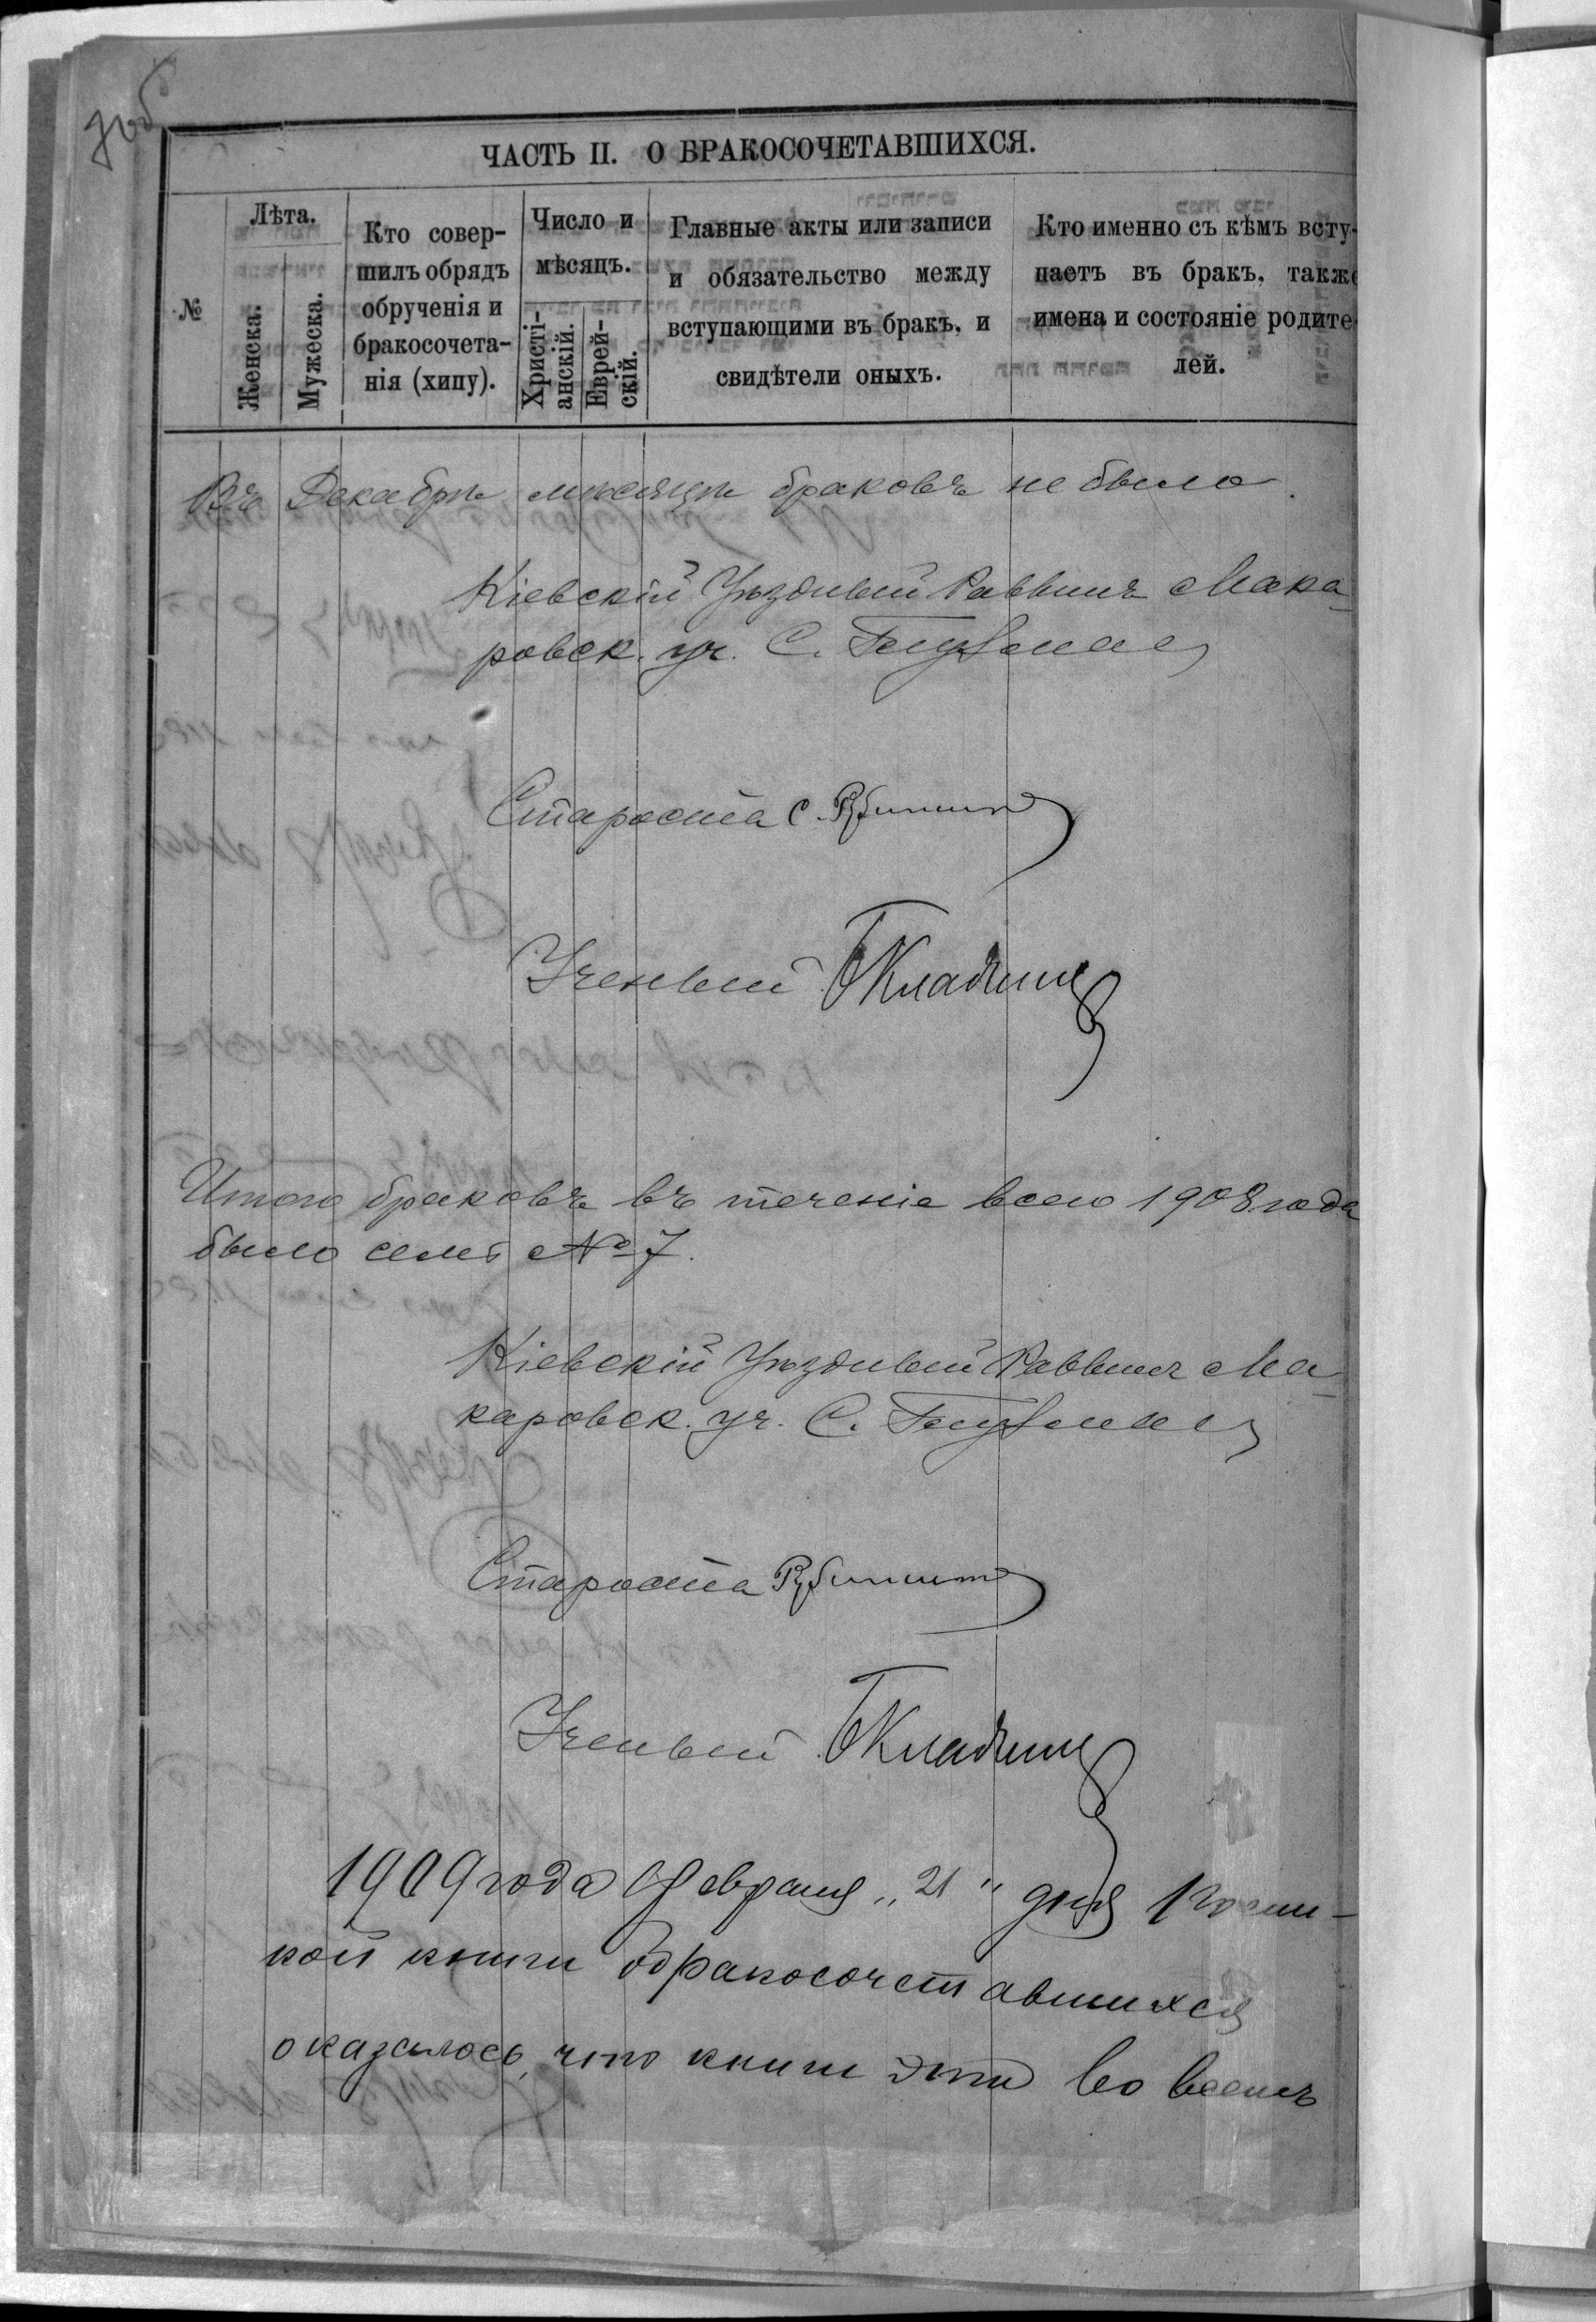 ЧАСТЬ II. О БРАКОСОЧЕТАВШИХСЯ.
№
Лѣта.
Женска.
Мужеска.
Кто совер-
шилъ обрядъ
обрученія и
бракосочета-
нія (хипу).
Число и
мѣсяцъ.
Христі-
анскій.
Еврей-
скій.
Главные акты или записи
и обязательство между
вступающими въ бракъ, и
свидѣтели оныхъ.
Кто именно съ кѣмъ всту-
паетъ въ бракъ, также
имена и состояніе родите-
лей.
Въ Декабрѣ мѣсяцѣ браковъ не было.
Кіевскій Уѣздный Раввинъ Мака-
ровск. уч. С.
Староста С.
Ученый
Итого браковъ въ теченіе всего 1908 года
было семь № 7.
Кіевскій Уѣздный Раввинъ Ма-
каровск. уч. С.
Староста
Ученый
1909 года Февраля „21" дня
кой книги о бракосочетавшихся
оказалось, что книги эти во всемъ